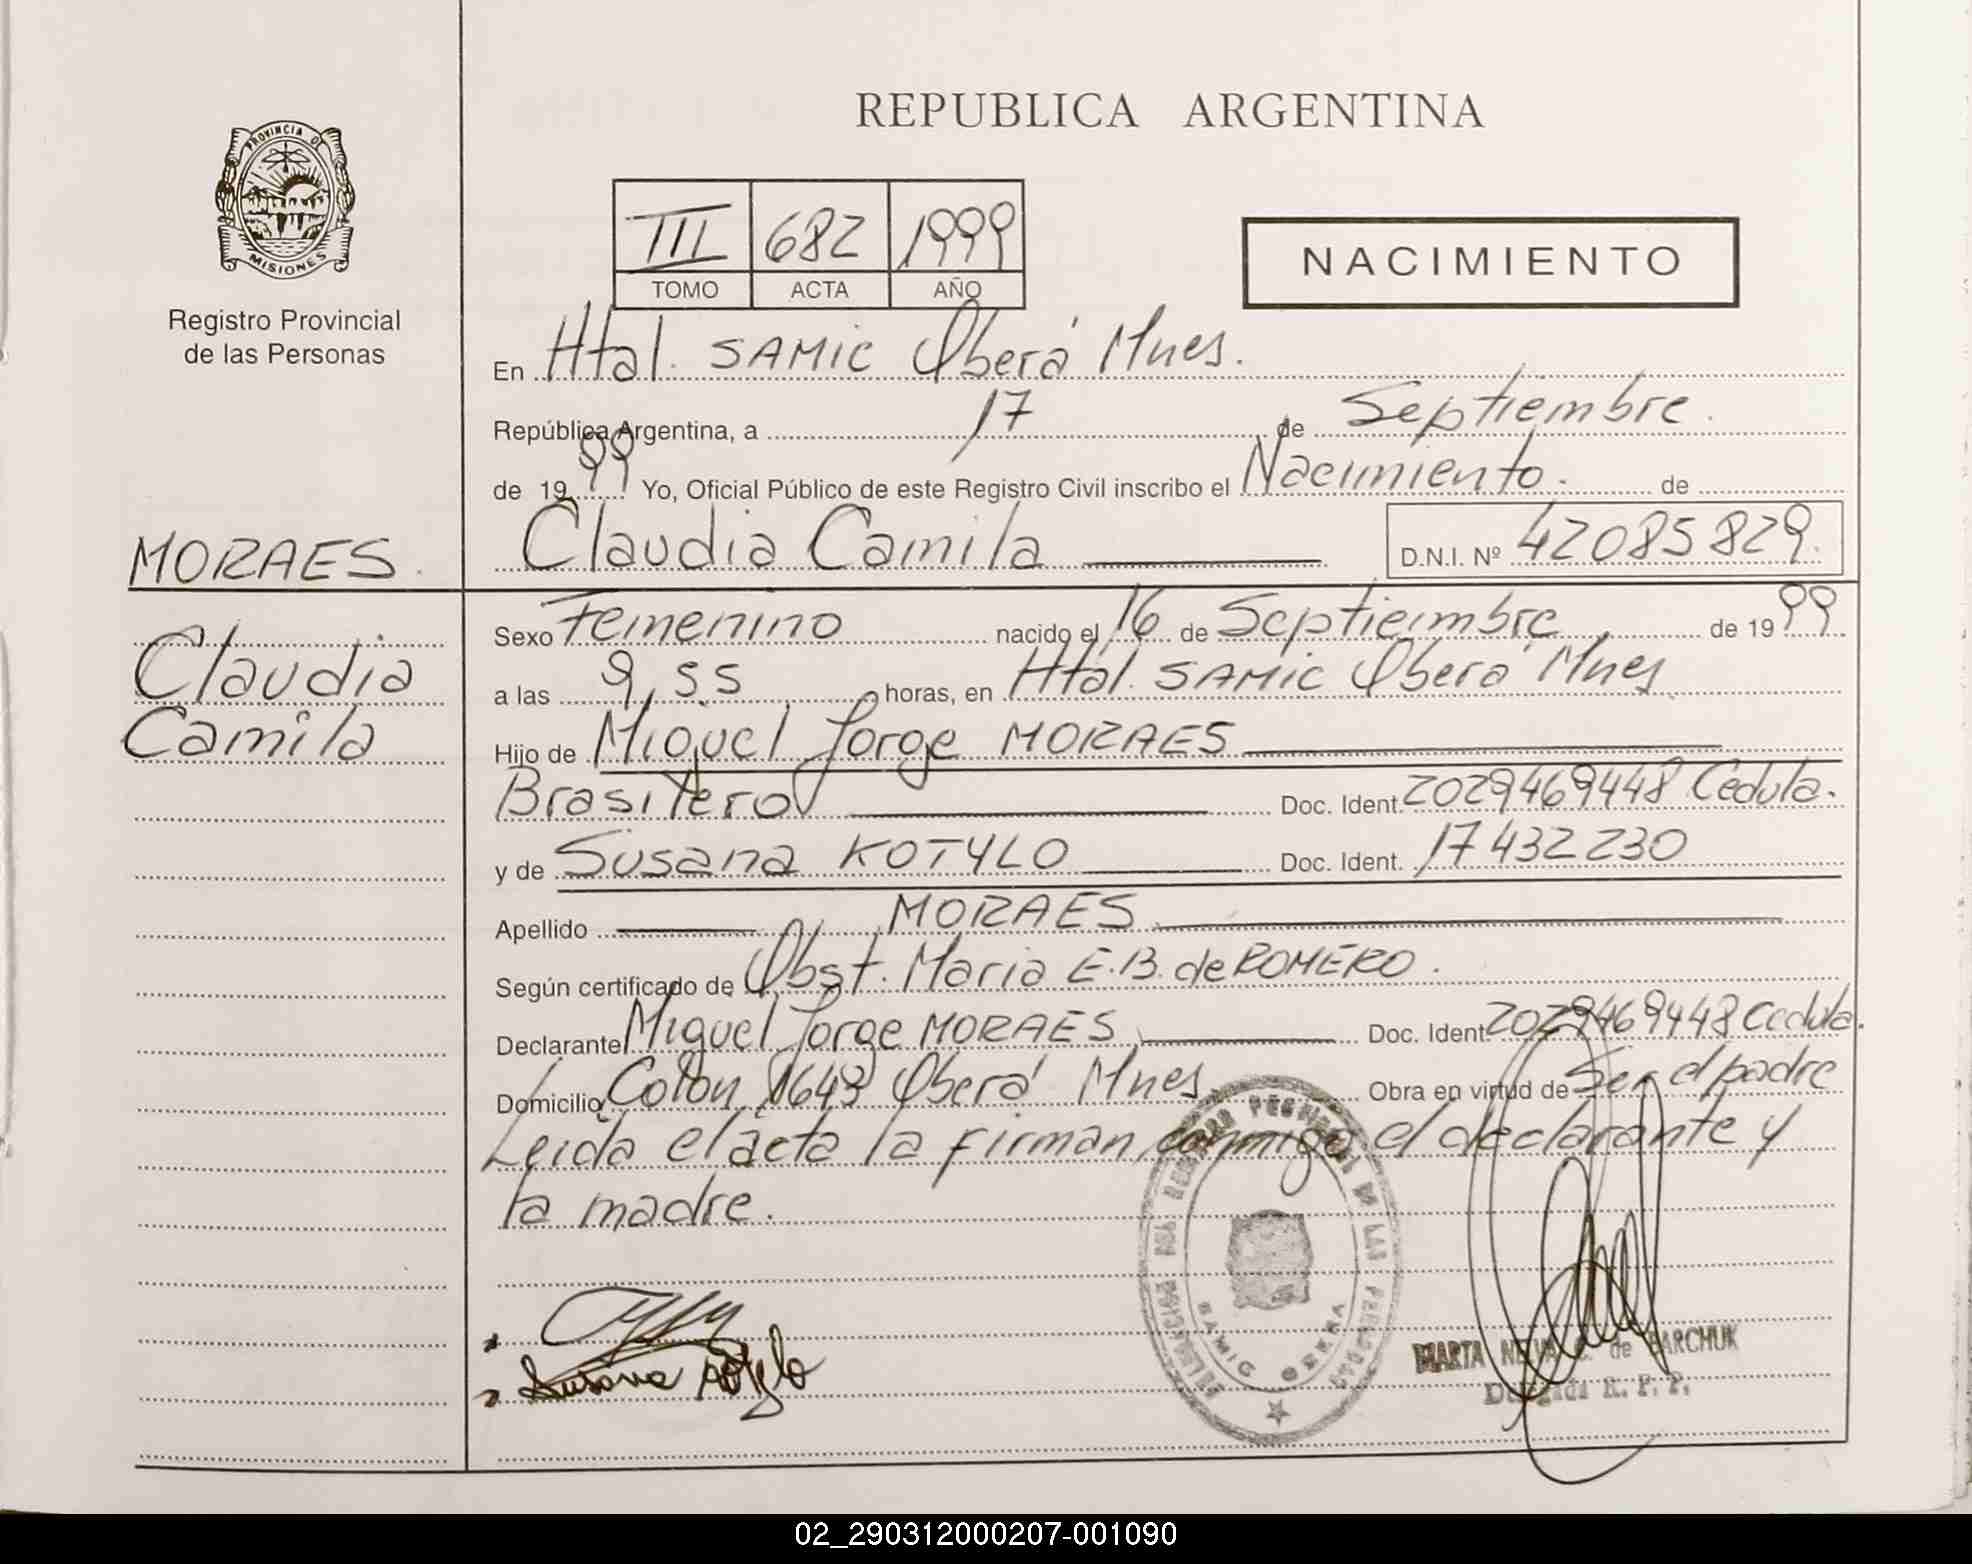 REPUBLICA ARGENTINA
PROVINCIA DE
MISIONES
Registro Provincial
de las Personas
III 682 1999
TOMO ACTA AÑO
NACIMIENTO
En Htal. SAMIC Oberá Mnes.
República Argentina, a 17 de Septiembre.
de 1999 Yo, Oficial Público de este Registro Civil inscribo el Nacimiento. de
Claudia Camila D.N.I. Nº 42085829.
MORAES.
Claudia
Camila
Sexo Femenino nacido el 16 de Septiembre de 1999
a las 9,55 horas, en Htal. SAMIC Oberá Mnes
Hijo de Miguel Jorge MORAES
Brasilero Doc. Ident. 2029469448 Cedula.
y de Susana KOTYLO Doc. Ident. 17432230
Apellido MORAES
Según certificado de Obst. Maria E.B. de ROMERO.
Declarante Miguel Jorge MORAES Doc. Ident. 2029469448 Cedula.
Domicilio Colon 1643 Oberá Mnes Obra en virtud de Ser el padre
Leida el acta la firman conmigo el declarante y
la madre.
Susana Kotylo
SAMIC OBERA
MARTA de BARCHUK
Delegada R. P. P.
02_290312000207-001090